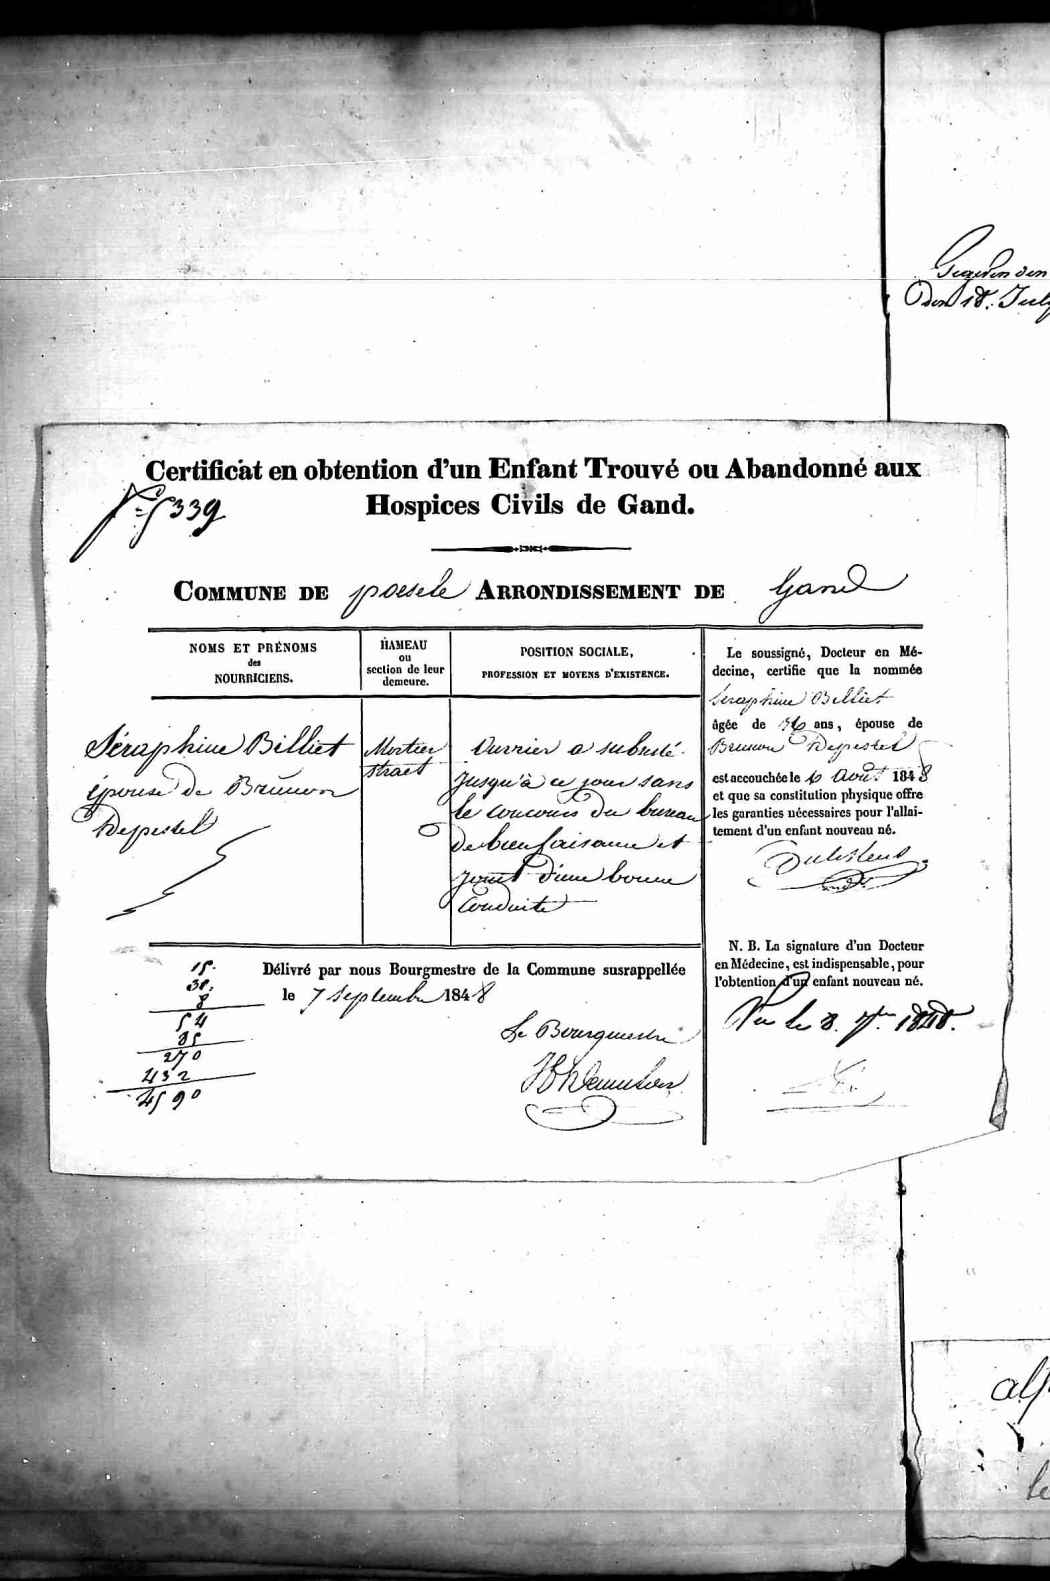 Certificat en obtention d'un Enfant Trouvé ou Abandonné aux
Hospices Civils de Gand.
N° 5339
COMMUNE DE poesele ARRONDISSEMENT DE Gand
NOMS ET PRÉNOMS
des
NOURRICIERS.
HAMEAU
ou
section de leur
demeure.
POSITION SOCIALE,
PROFESSION ET MOYENS D'EXISTENCE.
Séraphine Billiet
épouse de Brunon
Depestel
Mortier
straet
Ouvrier a subsisté
jusqu'à ce jour sans
le concours du bureau
de bienfaisance et
jouit d'une bonne
conduite
Le soussigné, Docteur en Mé-
decine, certifie que la nommée
Seraphine Billiet
âgée de 36 ans, épouse de
Brunon Depestel
est accouchée le 6 Août 1848
et que sa constitution physique offre
les garanties nécessaires pour l'allai-
tement d'un enfant nouveau né.
N. B. La signature d'un Docteur
en Médecine, est indispensable, pour
l'obtention d'un enfant nouveau né.
Vu le 8. 7bre 1848.
Délivré par nous Bourgmestre de la Commune susrappellée
le 7 Septembre 1848
Le Bourgmestre
15.
31.
8
54
85
270
432
4590
den 18. July
le